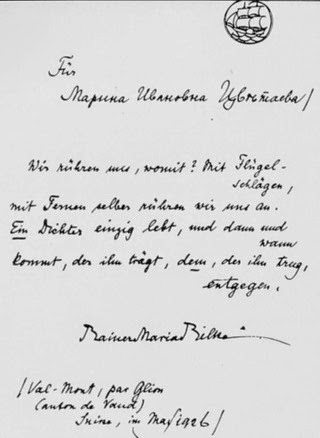 Für
Марина Ивановна Цвѣтаева /
Wir rühren uns, womit? Mit Flügel-
schlägen,
mit Fernen selber rühren wir uns an.
Ein Dichter einzig lebt, und dann und
wann
kommt, der ihn trägt, dem, der ihn trug,
entgegen.
Rainer Maria Rilke
/Val-Mont, par Glion
(Canton de Vaud)
Suisse, im May 1926/